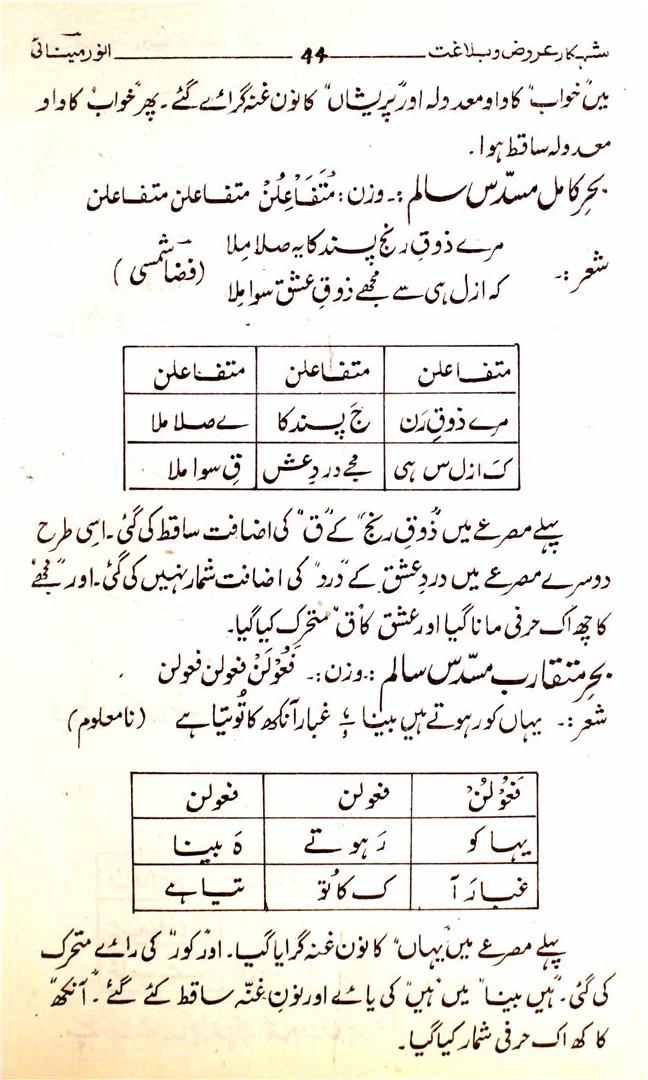 شہکار عروض و بلاغت ـــــ 44 ـــــ انور مینائی
میں "خواب" کا واو معدولہ اور "پریشاں" کا نون غنہ گرائے گئے۔ پھر "خواب" کا واو
معدولہ ساقط ہوا۔
بحرِ کامل مسدّس سالم :۔ وزن : مُتَفَاعِلُنْ متفاعلن متفاعلن
شعر :۔ مرے ذوقِ رنج پسند کا یہ صلا مِلا
کہ ازل ہی سے مجھے ذوقِ عشق سوا مِلا (فضا شمسی)
متفاعلن متفاعلن متفاعلن
مرے ذوقِ رَن جَ پسند کا ے صلا ملا
کَ ازل س ہی مجے دردِ عش قِ سوا ملا
پہلے مصرعے میں "ذُوقِ رنج" کے "ق" کی اضافت ساقط کی گئی۔ اسِی طرح
دوسرے مصرعے میں دردِ عشق کے "درد" کی اضافت شمار نہیں کی گئی۔ اور "مجھے"
کا چھ اک حرفی مانا گیا اور عشق کا "ق" متحرک کیا گیا۔
بحرِ متقارب مسدّس سالم :۔ وزن :۔ فَعُوْلُنْ فعولن فعولن
شعر :۔ یہاں کور ہوتے ہیں بینا ؎ غبار آنکھ کا تُوتیا ہے (نامعلوم)
فَعُوْلُنْ فعولن فعولن
یہا کو رَ ہوتے ہَ بینا
غبارَ آ ک کا تُو تیا ہے
پہلے مصرعے میں "یہاں" کا نون غنہ گرایا گیا۔ اور "کور" کی رائے متحرک
کی گئی۔ "ہیں بینا" میں "ہیں" کی یائے اور نونِ غنّہ ساقط کئے گئے۔ "آنکھ"
کا کھ اک حرفی شمار کیا گیا۔